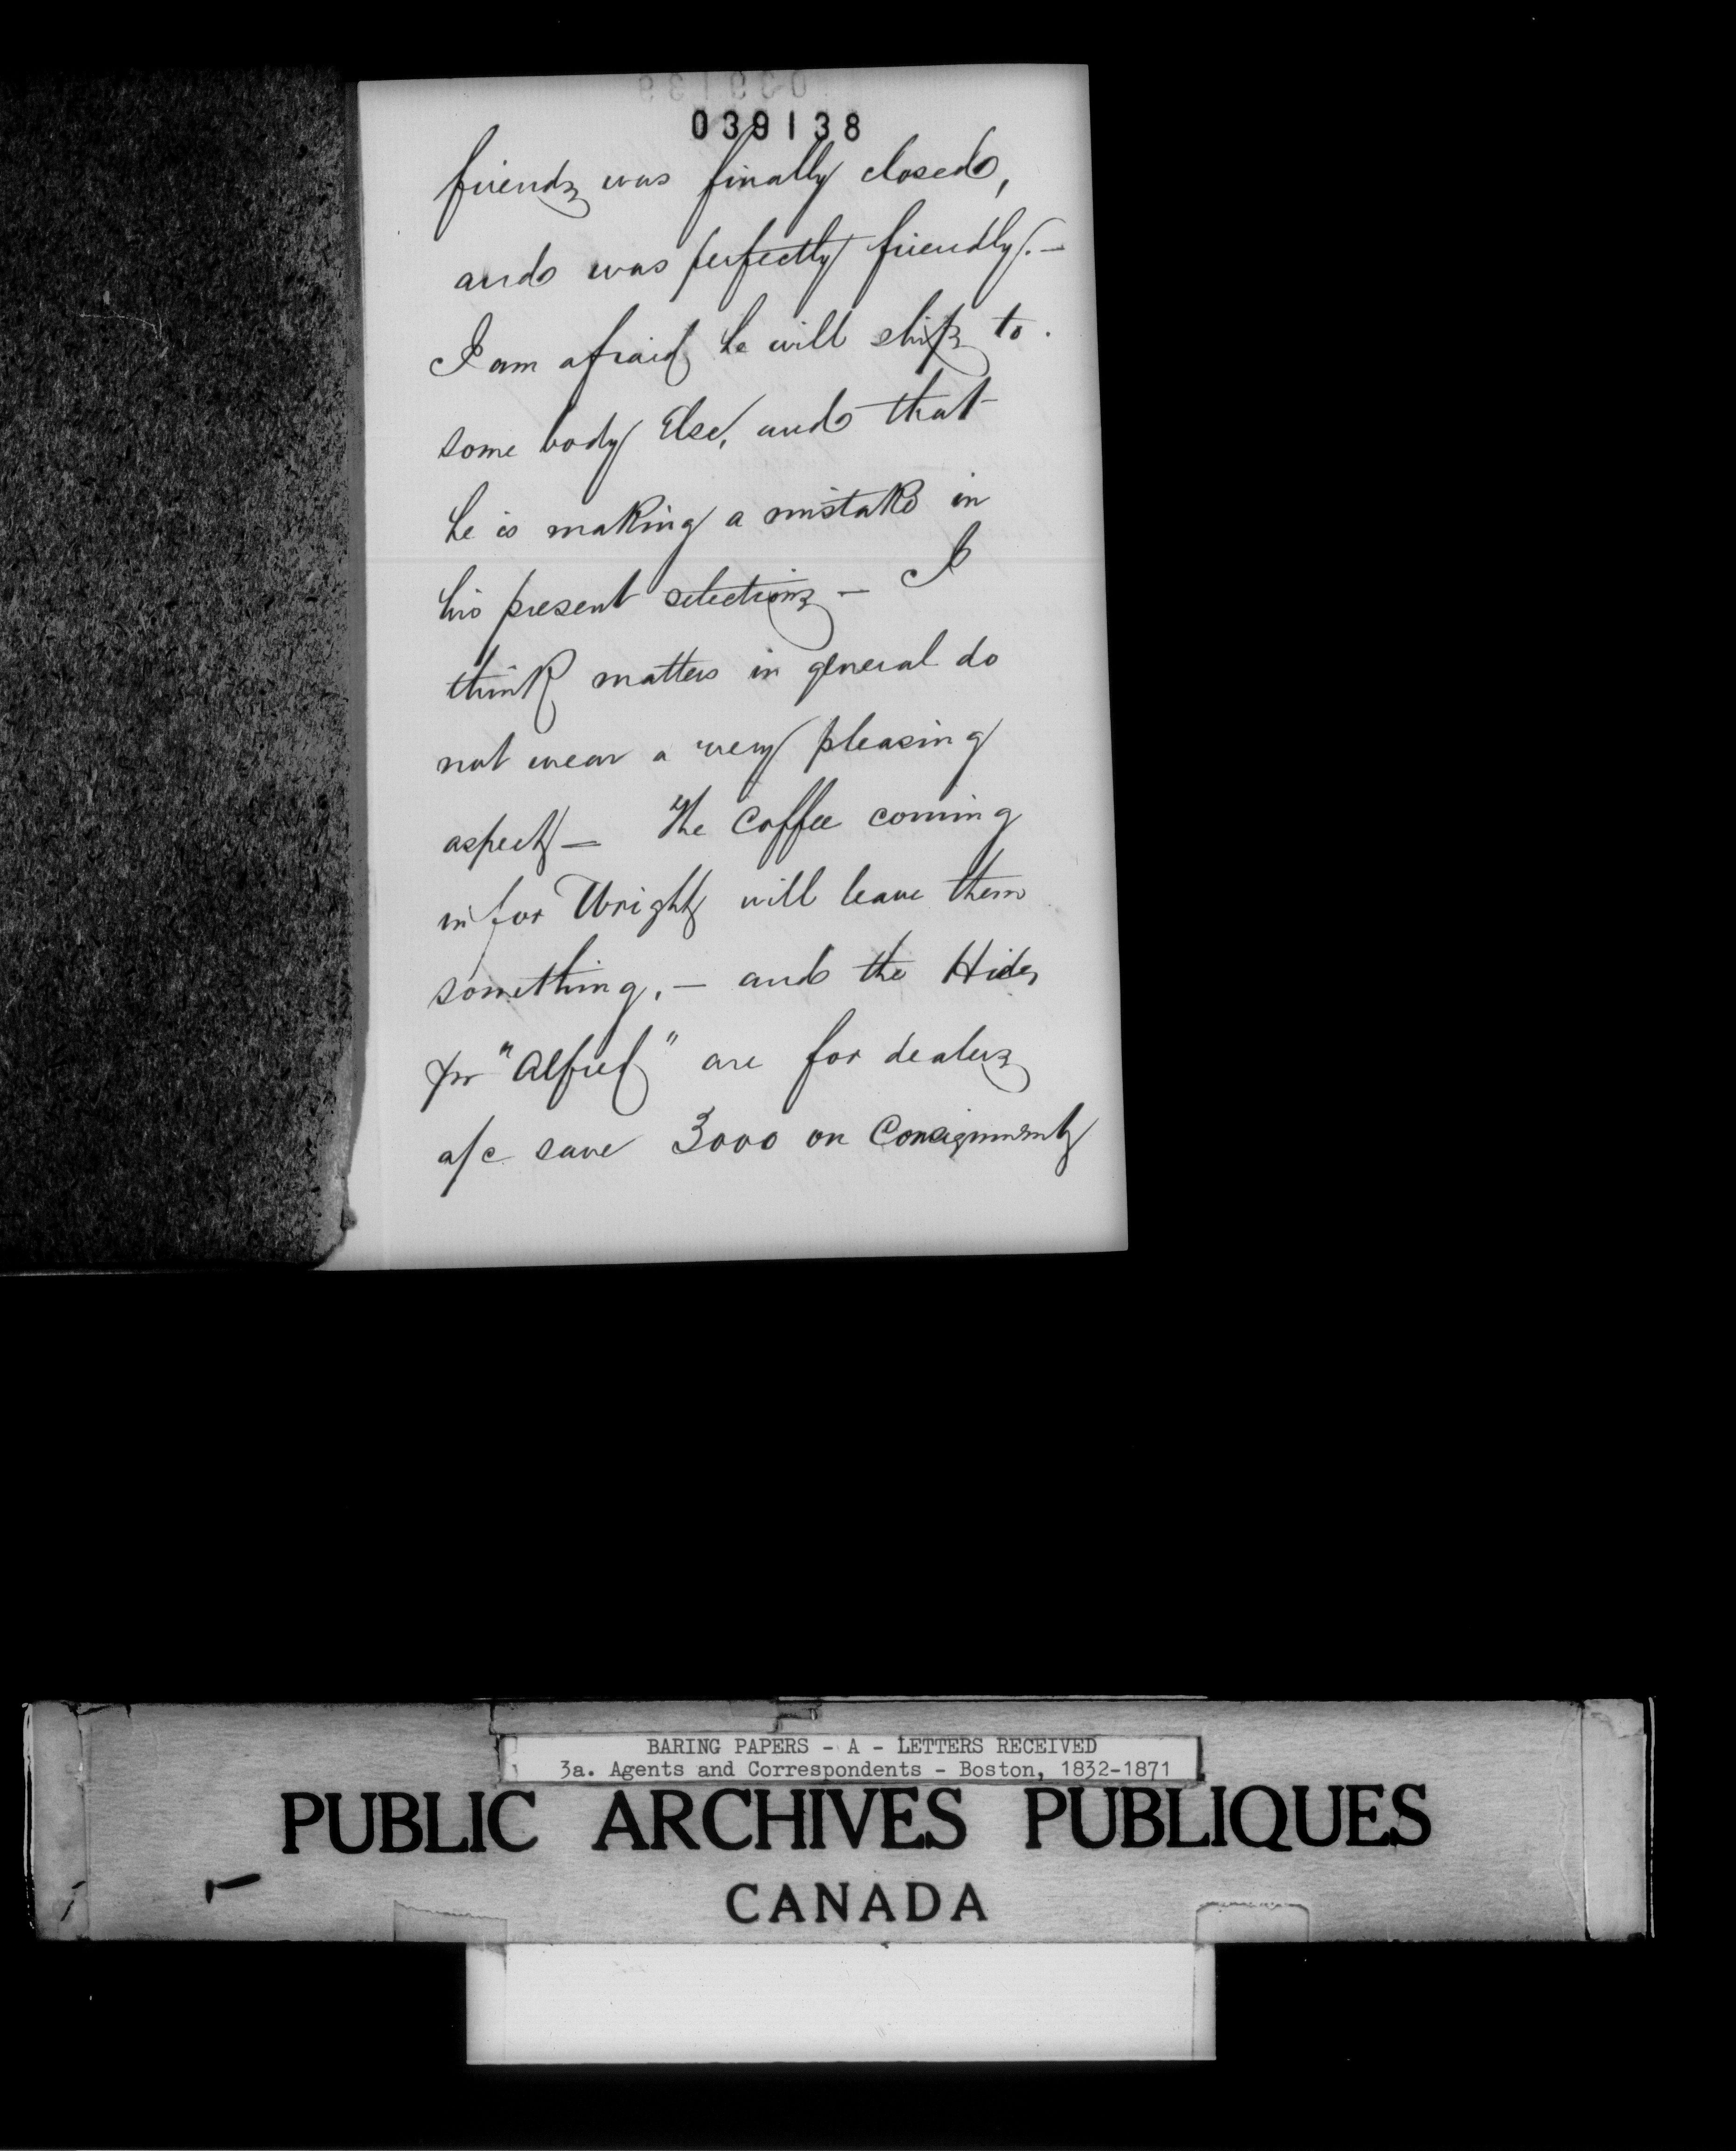 039139
039138
friends was finally closed,
and was perfectly friendly. —
I am afraid he will ship to
some body Else, and that
he is making a mistake in
his present selections — I
think matters in general do
not wear a very pleasing
aspect — The Coffee coming
in for Wright will leave them
something, — and the Hides
pr "Alfred" are for dealers
a/c save 3000 on Consignment
BARING PAPERS - A - LETTERS RECEIVED
3a. Agents and Correspondents - Boston, 1832-1871
PUBLIC ARCHIVES PUBLIQUES
CANADA